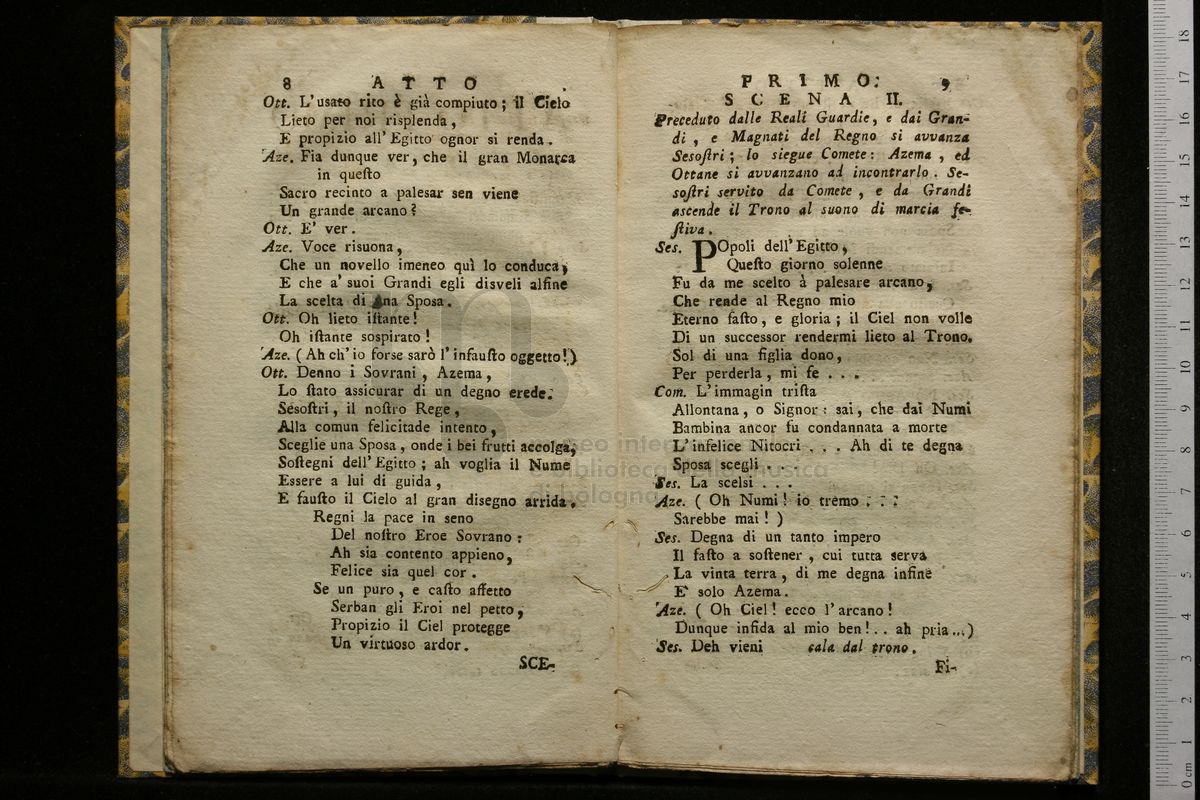 8 ATTO
Ott. L'usato rito è già compiuto; il Cielo
Lieto per noi risplenda,
E propizio all'Egitto ognor si renda.
Aze. Fia dunque ver, che il gran Monarca
in queſto
Sacro recinto a palesar sen viene
Un grande arcano?
Ott. E' ver.
Aze. Voce risuona,
Che un novello imeneo quì lo conduca,
E che a' suoi Grandi egli disveli alfine
La scelta di una Sposa.
Ott. Oh lieto iſtante!
Oh iſtante sospirato!
Aze. (Ah ch'io forse sarò l'infauſto oggetto!)
Ott. Denno i Sovrani, Azema,
Lo ſtato assicurar di un degno erede.
Sesoſtri, il noſtro Rege,
Alla comun felicitade intento,
Sceglie una Sposa, onde i bei frutti accolga,
Soſtegni dell'Egitto; ah voglia il Nume
Essere a lui di guida,
E fauſto il Cielo al gran disegno arrida.
Regni la pace in seno
Del noſtro Eroe Sovrano:
Ah sia contento appieno,
Felice sia quel cor.
Se un puro, e caſto affetto
Serban gli Eroi nel petto,
Propizio il Ciel protegge
Un virtuoso ardor.
SCE-
PRIMO. 9
SCENA II.
Preceduto dalle Reali Guardie, e dai Gran-
di, e Magnati del Regno si avvanza
Sesoſtri; lo siegue Comete: Azema, ed
Ottane si avvanzano ad incontrarlo. Se-
soſtri servito da Comete, e da Grandi
ascende il Trono al suono di marcia fe-
ſtiva.
Ses. POpoli dell'Egitto,
Queſto giorno solenne
Fu da me scelto à palesare arcano,
Che rende al Regno mio
Eterno faſto, e gloria; il Ciel non volle
Di un successor rendermi lieto al Trono.
Sol di una figlia dono,
Per perderla, mi fe...
Com. L'immagin triſta
Allontana, o Signor: sai, che dai Numi
Bambina ancor fu condannata a morte
L'infelice Nitocri... Ah di te degna
Sposa scegli...
Ses. La scelsi...
Aze. (Oh Numi! io tremo...
Sarebbe mai!)
Ses. Degna di un tanto impero
Il faſto a soſtener, cui tutta serva
La vinta terra, di me degna infine
E' solo Azema.
Aze. (Oh Ciel! ecco l'arcano!
Dunque infida al mio ben!.. ah pria...)
Ses. Deh vieni cala dal trono.
Fi-
museo internazionale
e biblioteca della musica
di bologna
0 cm 1 2 3 4 5 6 7 8 9 10 11 12 13 14 15 16 17 18